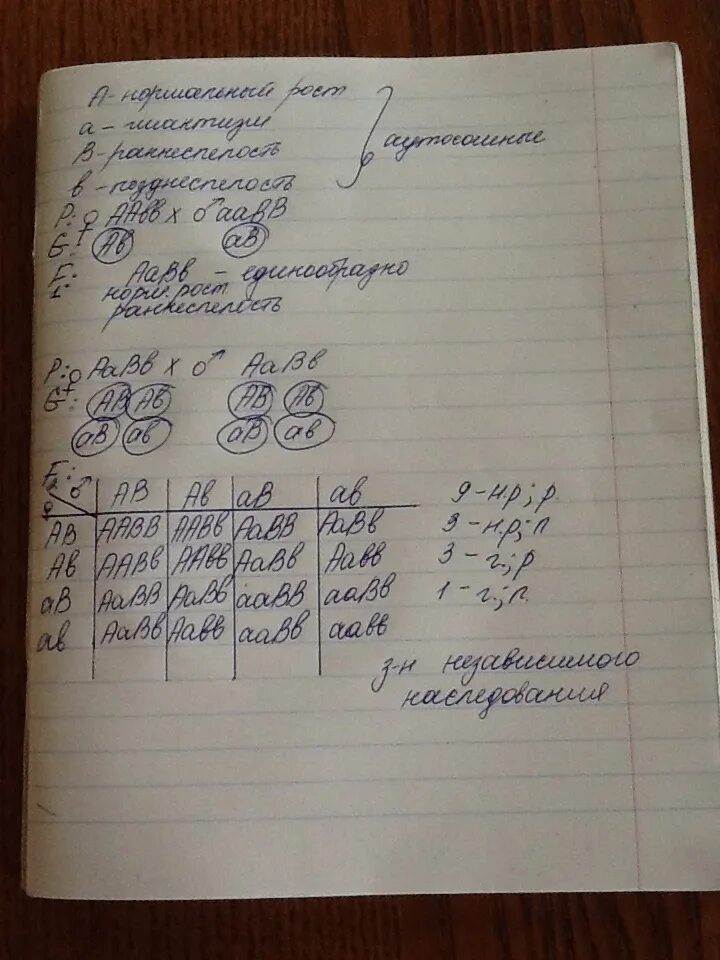 А - нормальный рост
а - гигантизм
В - раннеспелость
в - позднеспелость
аутосомные
P: ♀ ААвв х ♂ ааВВ
G: Ав аВ
F1: АаВв - единообразно
норм. рост
раннеспелость
P: ♀ АаВв х ♂ АаВв
G: АВ Ав АВ Ав
аВ ав аВ ав
F2:
♀ ♂ АВ Ав аВ ав
АВ ААВВ ААВв АаВВ АаВв
Ав ААВв ААвв АаВв Аавв
аВ АаВВ АаВв ааВВ ааВв
ав АаВв Аавв ааВв аавв
9 - н.р.; р.
3 - н.р.; п
3 - г.; р
1 - г.; п.
з-н независимого
наследования